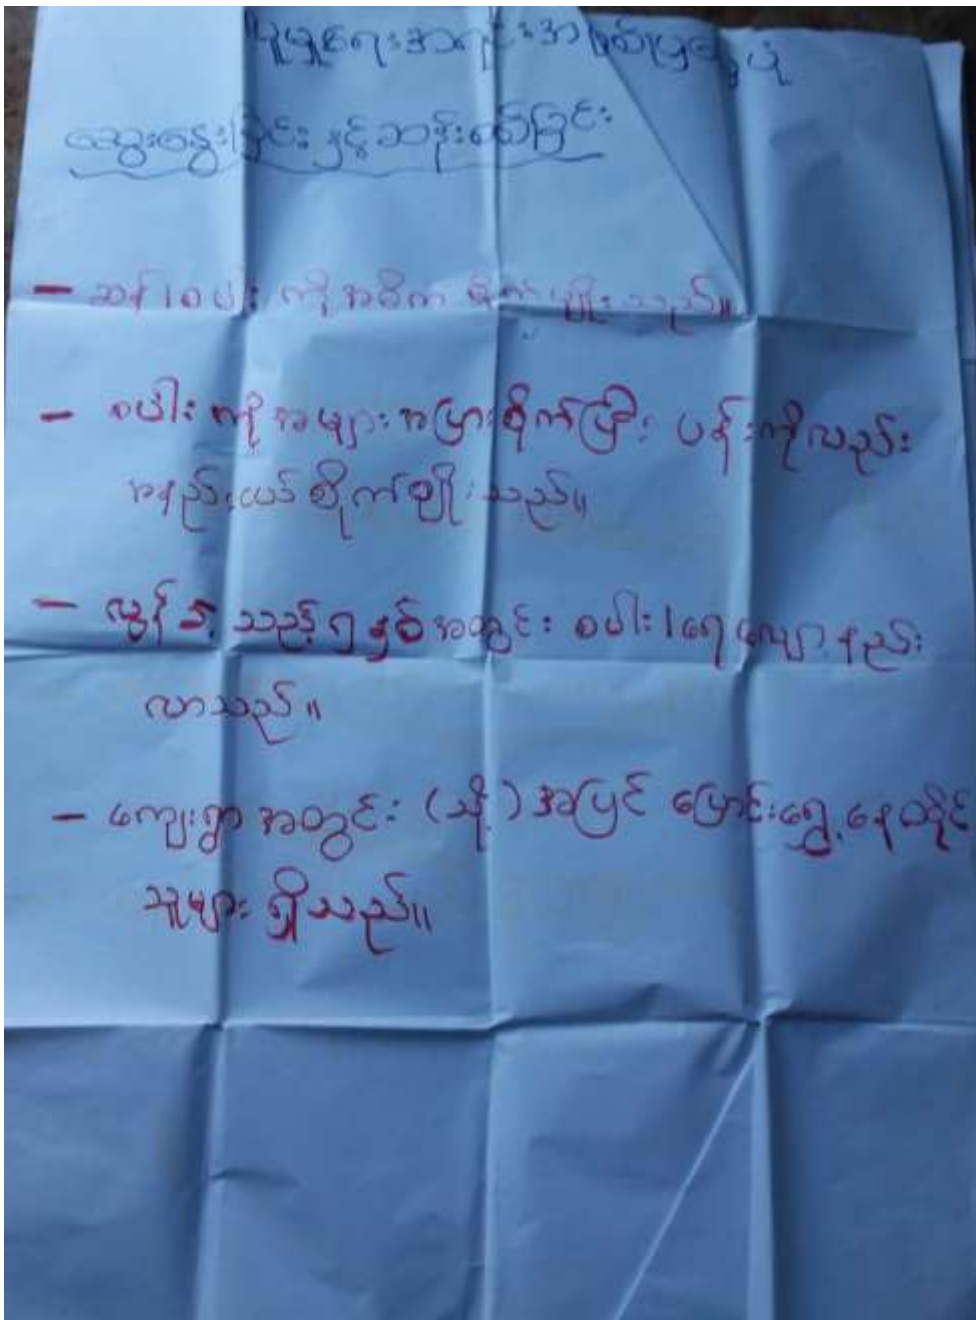 လူမှုရေးအရင်းအမြစ်ပြမြေပုံ
ဆွေးနွေးခြင်း နှင့်ဆန်းစစ်ခြင်း
- ဆန်စပါး ကိုအဓိက စိုက်ပျိုးသည်။
- စပါးကိုအများအပြားစိုက်ပြီး ပန်းကိုလည်း
အနည်းငယ်စိုက်ပျိုးသည်။
- လွန်ခဲ့သည့်၅နှစ်အတွင်း စပါး၊ရေ လျော့နည်း
လာသည်။
- ကျေးရွာအတွင်း (သို့) အပြင် ပြောင်းရွှေ့နေထိုင်
သူများ ရှိသည်။